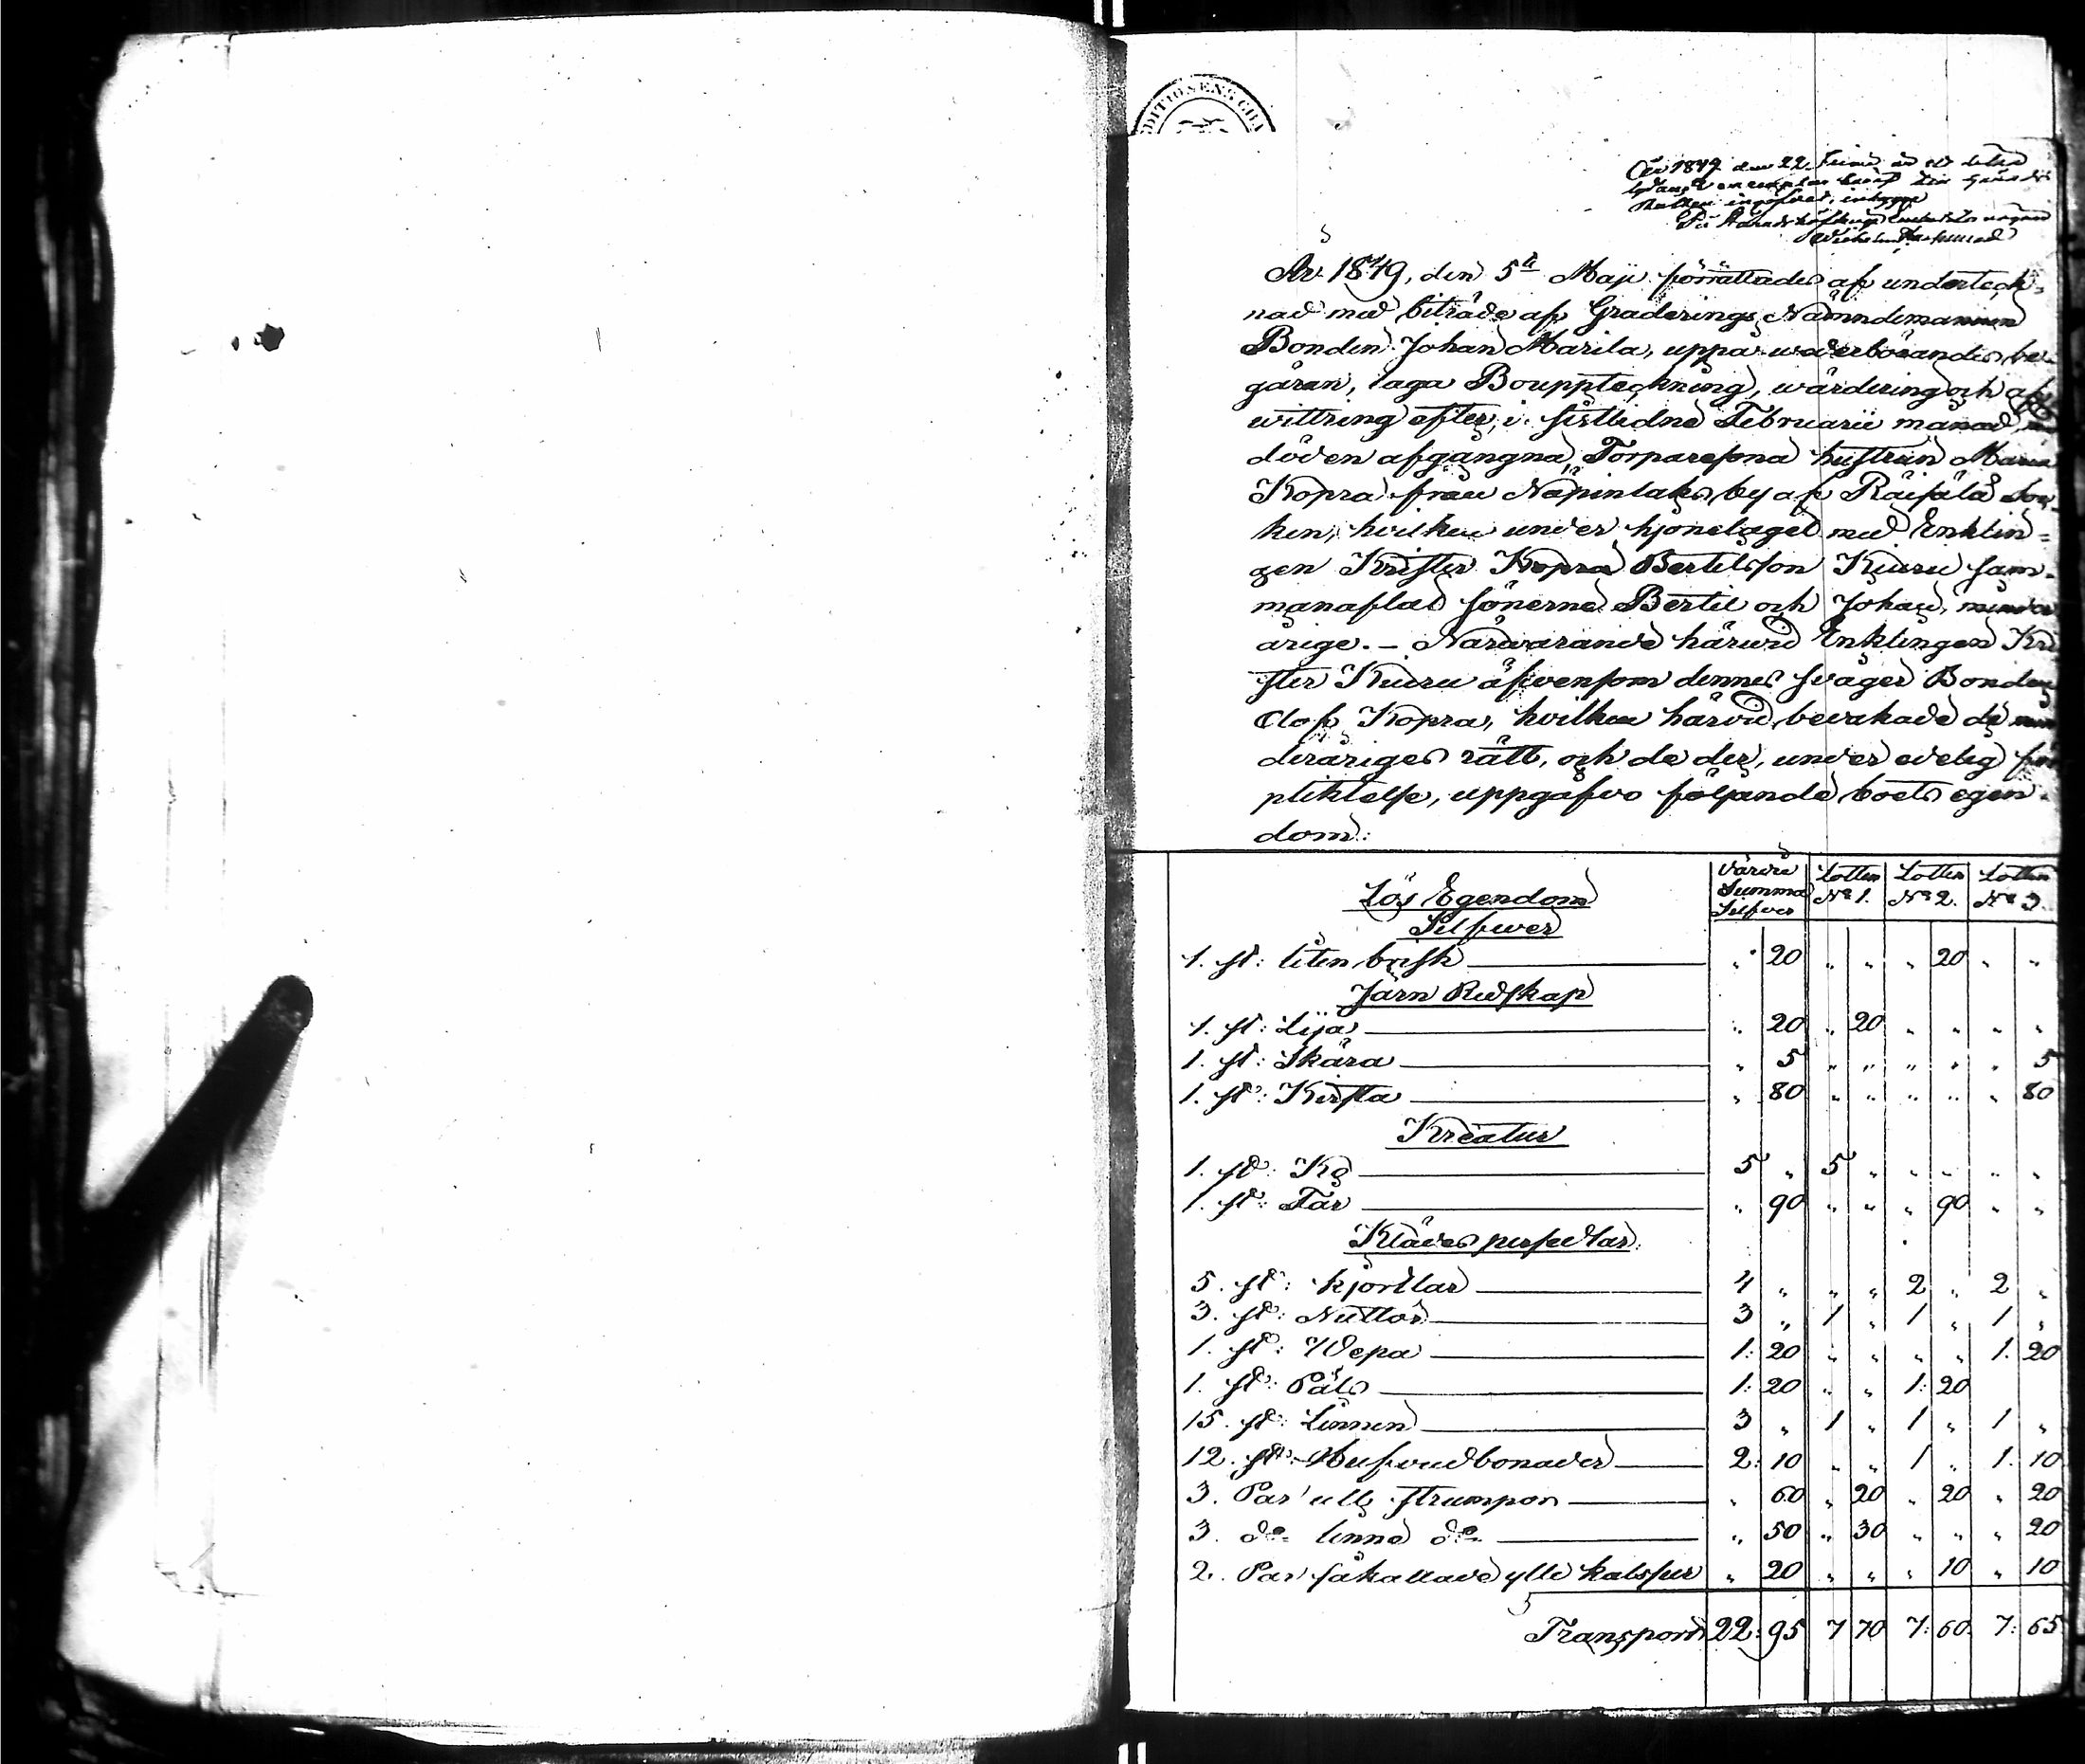 DITIONSENS CHA
År 1849 den 22 Junii är ett lika
lydande exemplar häraf till Härads
Rätten ingifvet, intygar
På Häradshöfdinge Embetets vägnar
Wilhelm
År 1849, den 5te Maji förrättades af underteck-
nad med biträde af Graderings Nämndemannen
Bonden Johan Marila, uppå wederbörandes be-
gäran, laga Bouppteckning, wärdering och af-
wittring efter, i sistledne Februarii månad, med
döden afgångna, Torparesona hustrun Maria
Kopra från Näpinlaks by af Räisälä Soc-
ken, hvilken under hjonelaget med Enklin-
gen Krister Kopra Bertilsson Kiuru sam-
manaflad sönerna Bertil och Johan, minder
årige. - Närvarande härwid Enklingen Kri
ster Kiuru äfvensom dennes svåger Bonden
Olof Kopra, hvilken härvid bevakade de min
deråriges rätt, och de der, under edelig för
pliktelse, uppgåfvo följande boets egen-
dom:
Lös Egendom Värde Summa Silfver Lotten No 1. Lotten No 2. Lotten No 3.
Silfwer
1. st: liten brisk " 20 " " " 20 " "
Järn Redskap
1. st: Lija " 20 " 20 " " " "
1. st: Skära " 5 " " " " " 5
1. st: Kista " 80 " " " " " 80
Kreatur
1. st: Ko 5 " 5 " " " " "
1. st: Får " 90 " " " 90 " "
Klädes persedlar
5. st: kjortlar 4 " " " 2 " 2 "
3. st: Nuttor 3 " 1 " 1 " 1 "
1. st: Wepa 1: 20 " " " " 1. 20
1. st: Päls 1: 20 " " 1: 20
15. st: Linnen 3 " 1 " 1 " 1 "
12. st: Hufvudbonader 2: 10 " " 1 " 1. 10
3. Par ull strumpor " 60 " 20 " 20 " 20
3. do linne do " 50 " 30 " " " 20
2. Par såkallade ylle kalsper " 20 " " " 10 " 10
Transport 22: 95 7 70 7: 60. 7: 65